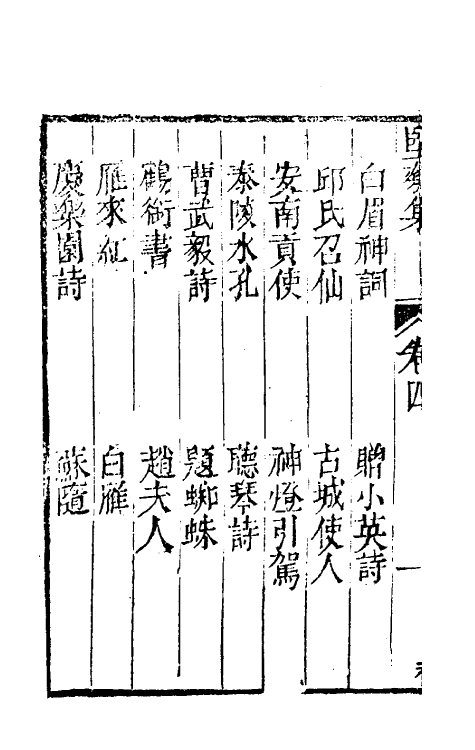 堅瓠集 卷四 一
白眉神詞 贈小英詩
邱氏召仙 古城使人
安南貢使 神燈引駕
泰陵水孔 聽琴詩
曹武毅詩 題蜘蛛
鶴銜書 趙夫人
雁來紅 白雁
廣樂園詩 蘇隨